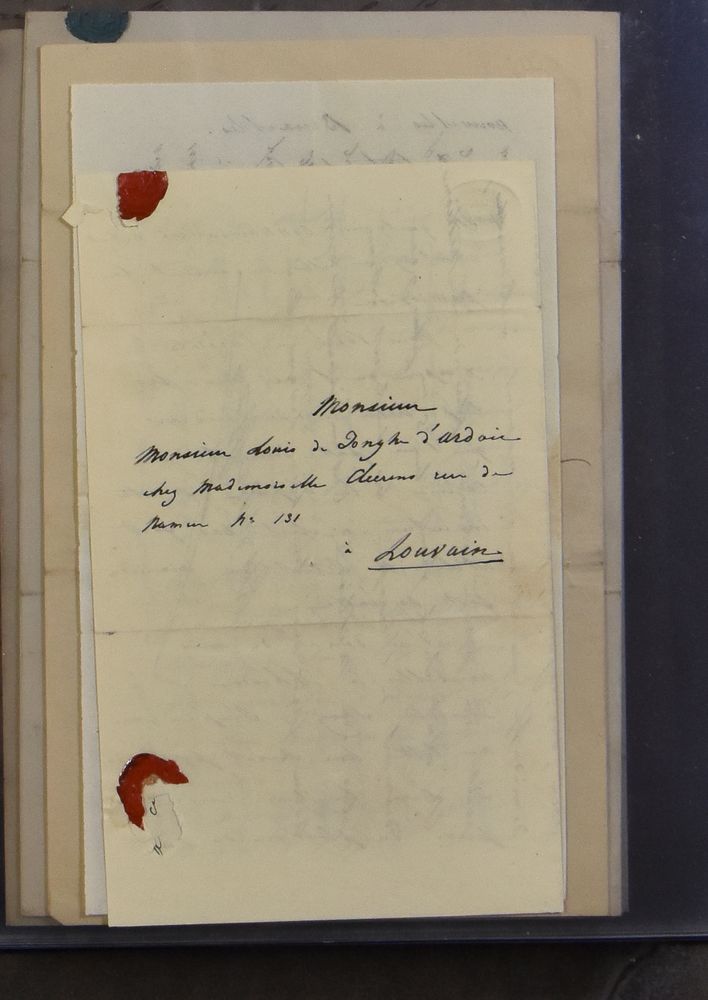 Monsieur
Monsieur Louis de Jonghe d'Ardoie
chez Mademoiselle Cleerens rue de
Namur N° 131
à Louvain